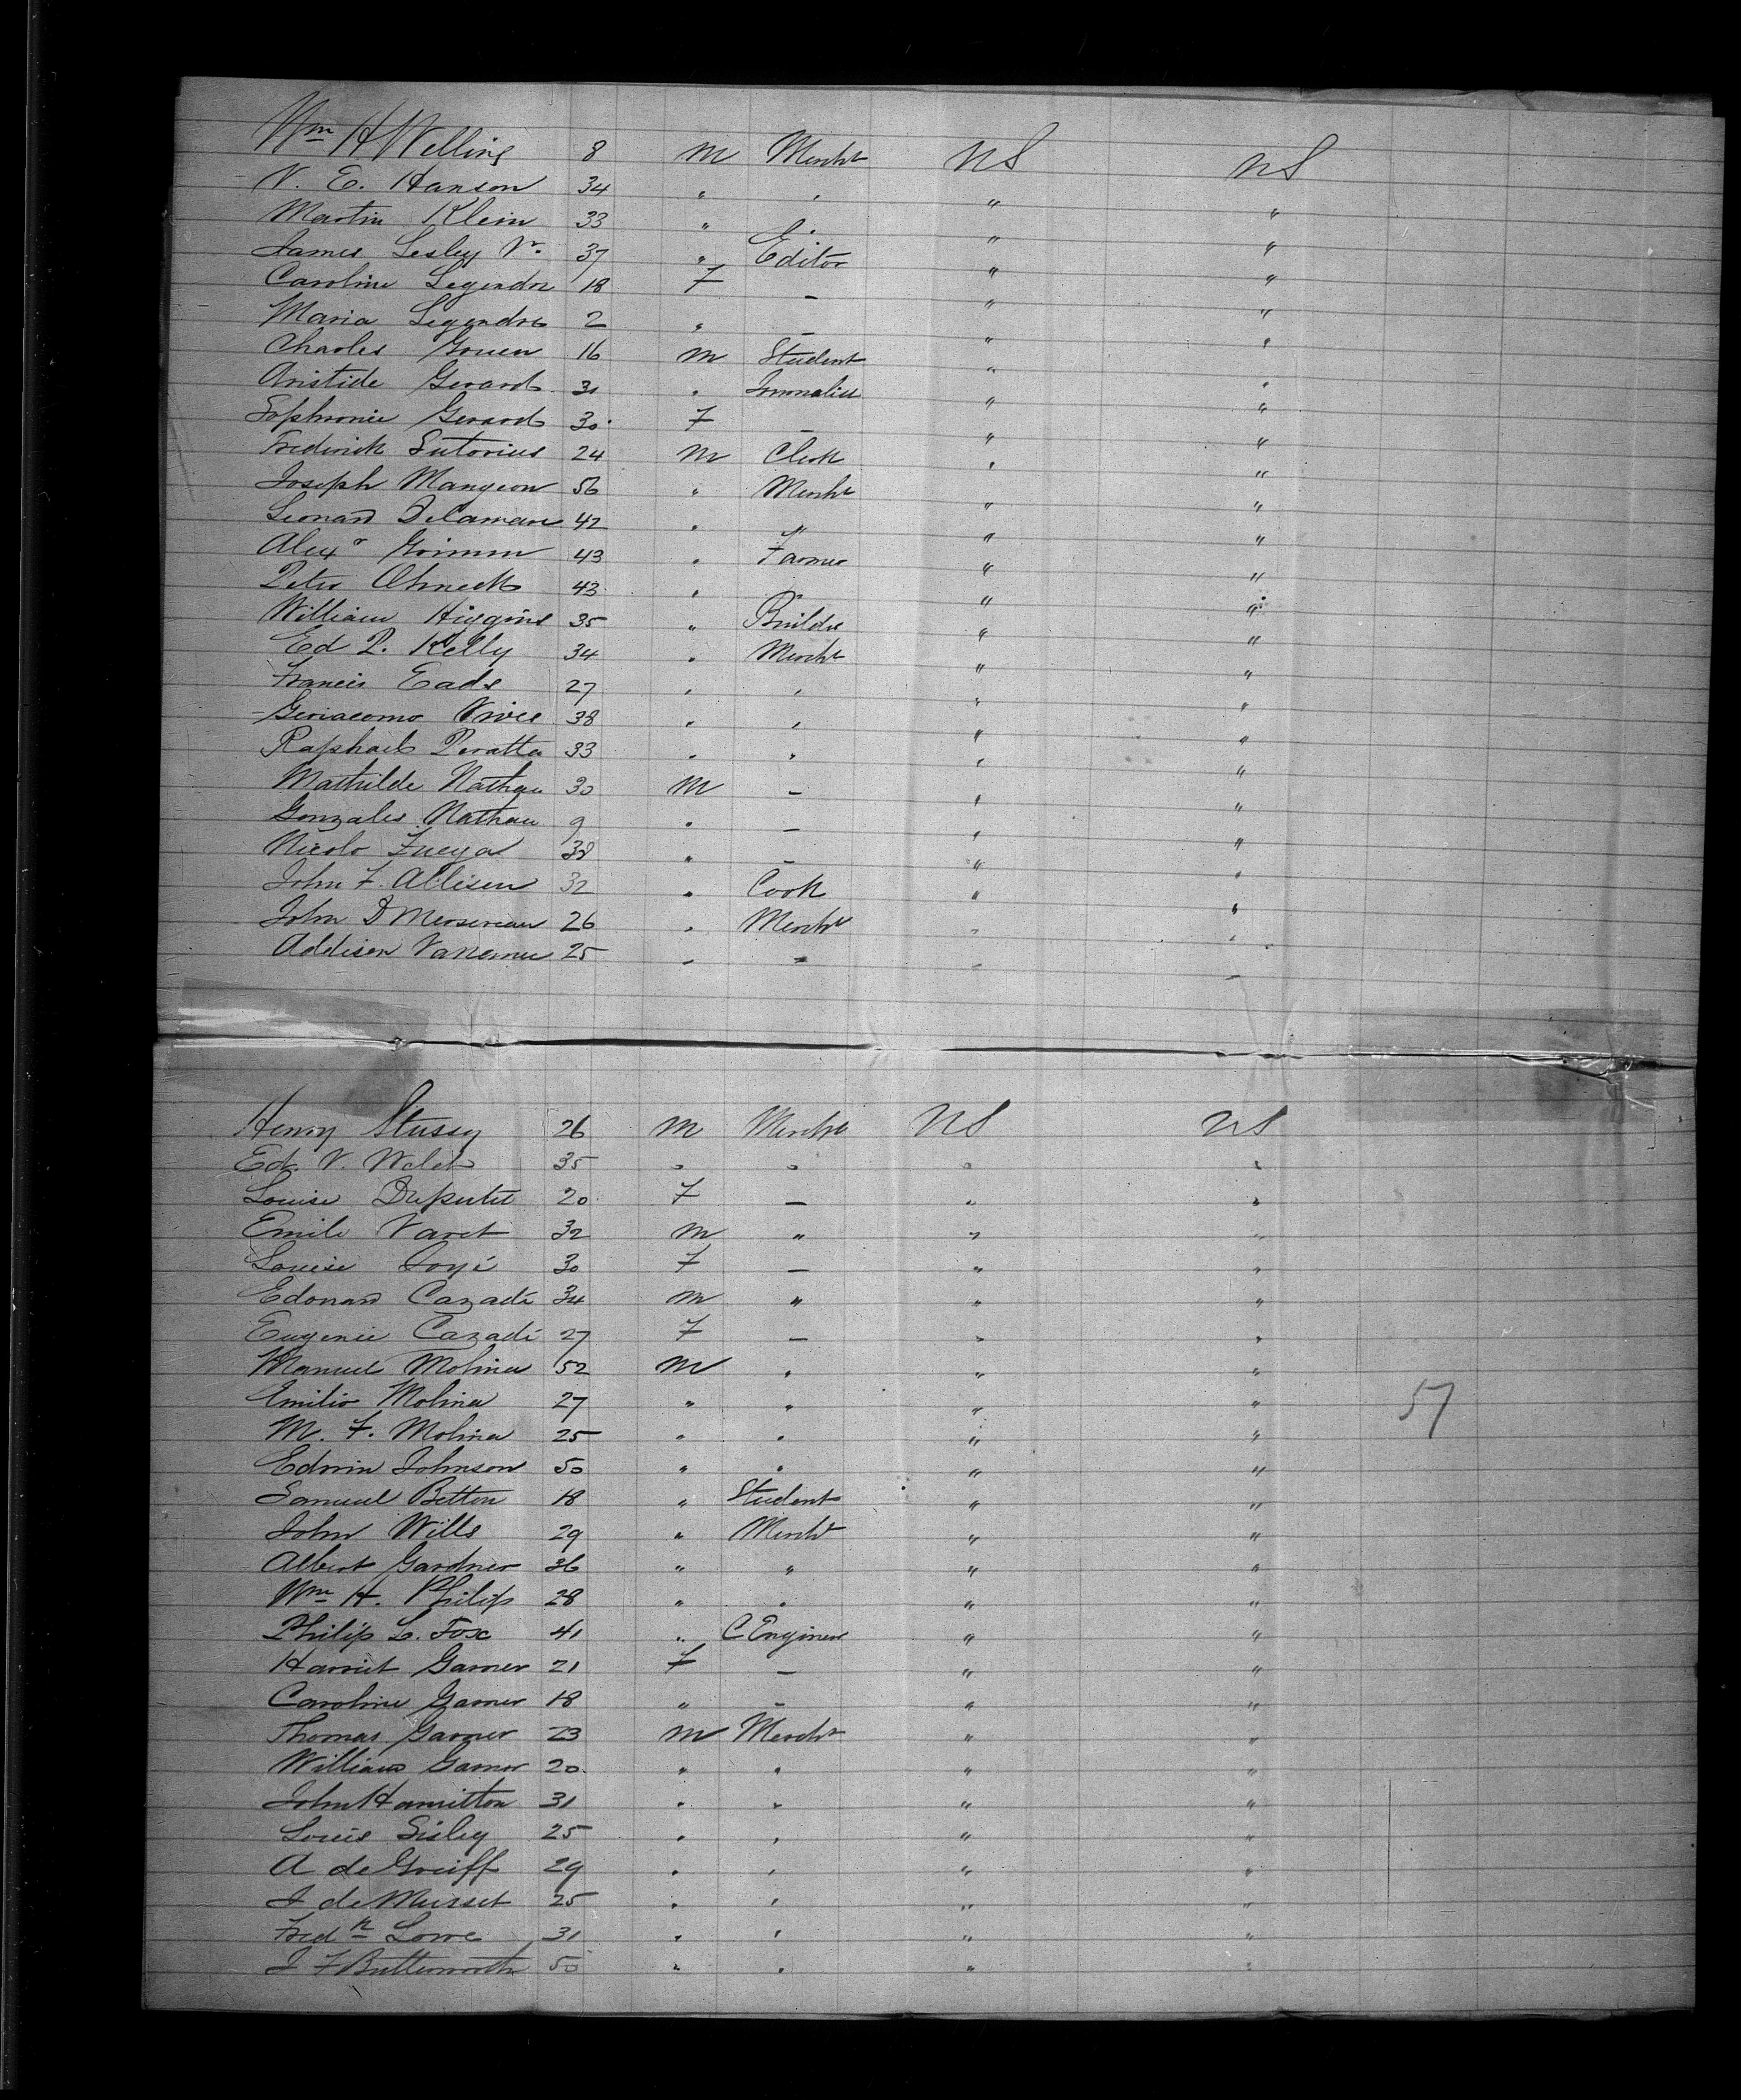 Wm H Welling 8 M Mercht US US
V. E. Hanson 34 " " " "
Martin Klein 33 " " " "
James Lesley Jr. 37 " Editor " "
Caroline Legendre 18 F - " "
Maria Legendre 2 " - " "
Charles Gouen 16 M Student " "
Aristide Gerard 31 " Journalist " "
Sophronie Gerard 30 F - " "
Frederick Sutorius 24 M Clerk " "
Joseph Mangeon 56 " Mercht " "
Leonard Delamare 42 " " " "
Alexr Grimm 43 " Farmer " "
Peter Ohneck 43 " " " "
William Higgins 35 " Builder " "
Ed P. Kelly 34 " Mercht " "
Francis Eads 27 " " " "
Geriacomo Vives 38 " " " "
Raphael Peratta 33 " " " "
Mathilde Nathan 30 M - " "
Gonzales Nathan 9 " - " "
Nicolo Zueya 38 " - " "
John F. Allisen 32 " Cook " "
John D Mersereau 26 " Mercht " "
Addison Vanamee 25 " " " "
Henry Stussy 26 M Mercht US US
Ed. V. Welch 35 " " " "
Louise 20 F - " "
Emile Varet 32 M " " "
Louise 30 F - " "
Edouard Cazade 34 M " " "
Eugenie Cazade 27 F - " "
Manuel Molina 52 M " " "
Emilio Molina 27 " " " " 57
M. F. Molina 25 " " " "
Edwin Johnson 50 " " " "
Samuel Betton 18 " Student " "
John Wills 29 " Mercht " "
Albert Gardner 36 " " " "
Wm H. Philip 28 " " " "
Philip L. Fox 41 " C Engineer " "
Harriet Garner 21 F - " "
Caroline Garner 18 " - " "
Thomas Garner 23 M Mercht " "
William Garner 20 " " " "
John Hamilton 31 " " " "
Louis Sisley 25 " " " "
A de Greiff 29 " " " "
J de Musset 25 " " " "
Fredk Lowe 31 " " " "
J F Butterworth 50 " " " "